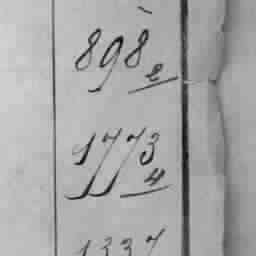 898 2
1773 4
1337